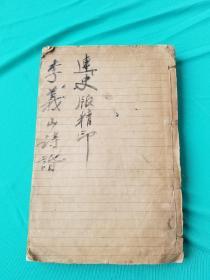 連史版精印
李義山詩